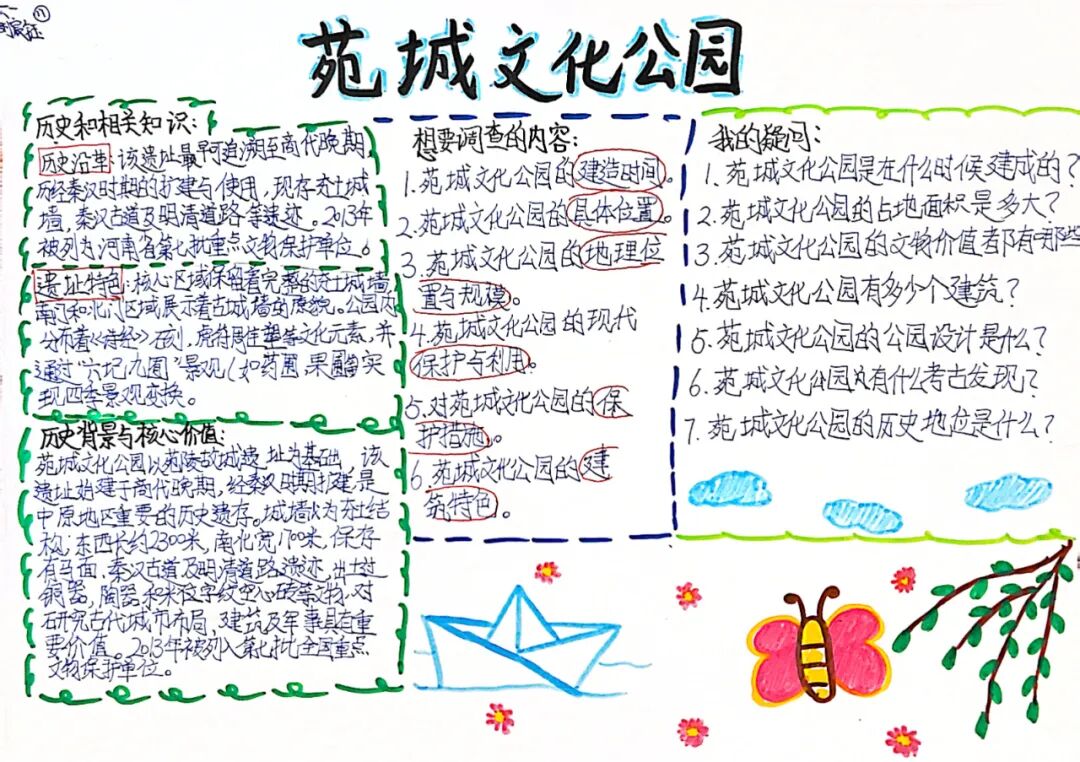 苑城文化公园
历史和相关知识:
历史沿革:该遗址最早可追溯至商代晚期,
历经秦汉时期的扩建与使用,现存夯土城
墙,秦汉古道及明清道路等遗迹。2013年
被列为河南省第七批重点文物保护单位。
遗址特色:核心区域保留着完整的夯土城墙,
南门和北门区域展示着古城墙的原貌。公园内
分布着《诗经》石刻,虎符雕塑等文化元素,并
通过“六圮九圃”景观(如药圃,果圃等实
现四季景观变换。
历史背景与核心价值:
苑城文化公园以苑陵故城遗址为基础,该
遗址始建于商代晚期,经秦汉时期扩建,是
中原地区重要的历史遗存。城墙以为夯土结
构,东西长约2300米,南北宽1700米,保存
有马面,秦汉古道及明清道路遗迹,出土过
铜器,陶瓷和米字纹空心砖等文物,对
研究古代城市布局,建筑及军事具有重
要价值。2013年被列入第七批全国重点
文物保护单位。
想要调查的内容:
1.苑城文化公园的建造时间。
2.苑城文化公园的具体位置。
3.苑城文化公园的地理位
置与规模。
4.苑城文化公园的现代
保护与利用。
5.对苑城文化公园的保
护措施。
6.苑城文化公园的建
筑特色。
我的疑问:
1.苑城文化公园是在什么时候建成的?
2.苑城文化公园的占地面积是多大?
3.苑城文化公园的文物价值都有哪些
4.苑城文化公园有多少个建筑?
5.苑城文化公园的公园设计是什么?
6.苑城文化公园内有什么考古发现?
7.苑城文化公园的历史地位是什么?